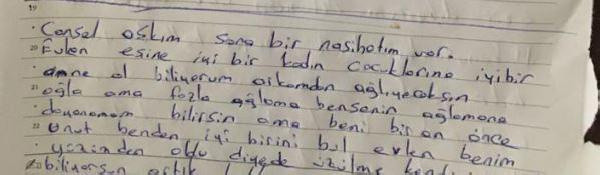 19
· Cansel aşkım sana bir nasihatım var.
20 Evlen eşine iyi bir kadın çocuklarına iyi bir
· anne ol biliyorum arkamdan ağlıyacaksın
21 ağla ama fazla ağlama bensenin ağlamana
· dayanamam bilirsin ama beni bir an önce
22 unut benden iyi birini bul evlen benim
· yüzünden oldu diyede üzülme
biliyorsun artık